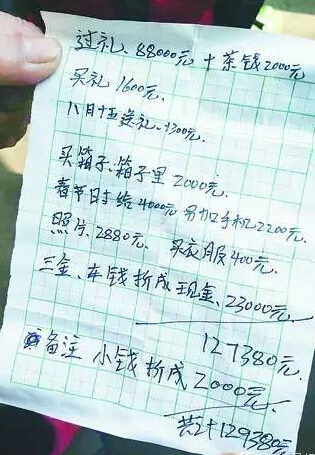 过礼 88000元 + 茶钱2000元
买礼 1600元.
八月十五送礼.1300元.
买箱子.箱子里 2000元.
春节时给4000元 另加手机2200元.
照片.2880元. 买衣服400元.
三金、车钱折成现金.23000元.
127380元.
备注 小钱折成2000元.
共计129380元.